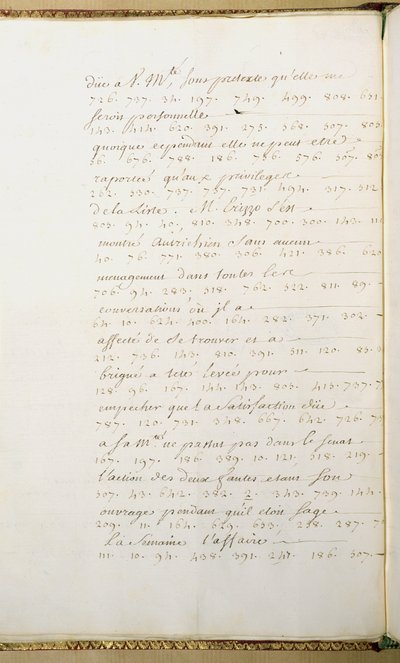 düe a V. Mté, sous pretexte qu'elle me
726. 737. 34. 197. 749. 499. 808. 631.
seroit personnelle
143. 414. 620. 391. 273. 368. 307. 803
quoique cependant elle ne peut etre
36. 676. 788. 186. 736. 376. 307. 80
raportée qu'aux privileges
262. 330. 737. 737. 731. 494. 317. 312
de la Liste. M. Erizzo s'est
803. 94. 40. 810. 348. 700. 300. 143. 11
montré Autrichien sans aucun
40. 76. 771. 380. 306. 421. 386. 620
menagement dans toutes les
706. 94. 283. 318. 762. 322. 811. 89.
conversations où il a
64. 10. 624. 400. 164. 282. 371. 302.
affecté de se trouver et a
212. 736. 143. 810. 391. 311. 120. 83.
brigué a tete levée pour
128. 96. 167. 144. 143. 803. 413. 737.
empecher que la satisfaction düe
787. 120. 731. 348. 667. 642. 726. 73
a sa Mté ne passat pas dans le Senat
167. 197. 186. 389. 10. 121. 318. 219.
l'action des deux
307. 43. 642. 382. 2. 343. 739. 144.
ouvrage pendant qu'il etoit sage
209. 11. 164. 629. 633. 238. 287. 7
la semaine l'affaire
111. 10. 94. 438. 391. 247. 186. 307.